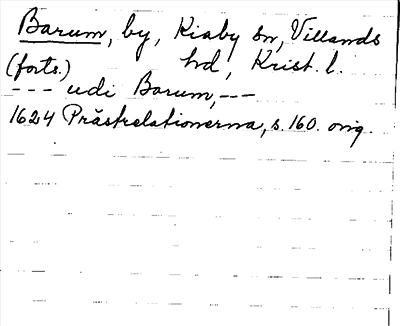 Barum, by, Kiaby sn, Villands
(forts.) hd, Krist. l.
--- udi Barum, ---
1624 Prästrelationerna, s. 160. orig.